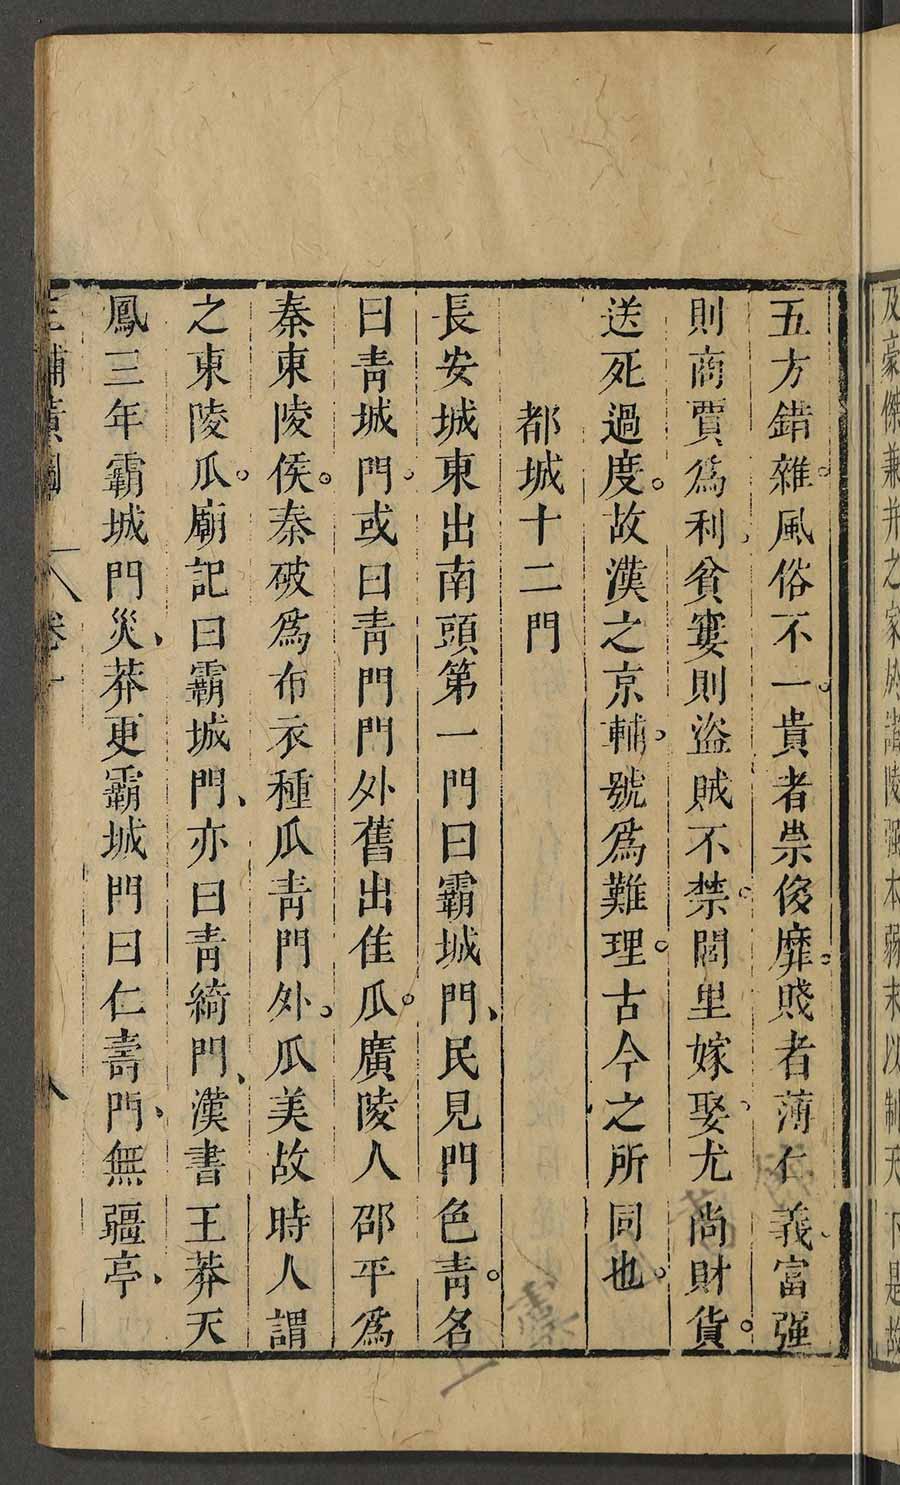 及豪傑兼并之家於諸陵强本弱末以制天下是故
五方錯雜。風俗不一。貴者崇侈靡。賤者薄仁義、富强
則商賈爲利、貧窶則盜賊不禁。閭里嫁娶、尤尚財貨。
送死過度。故漢之京輔、號爲難理。古今之所同也。
都城十二門
長安城東出南頭第一門曰霸城門、民見門色青。名
曰青城門、或曰青門門外舊出佳瓜。廣陵人邵平爲
秦東陵侯。秦破爲布衣種瓜青門外。瓜美故時人謂
之東陵瓜。廟記曰霸城門、亦曰青綺門、漢書王莽天
鳳三年霸城門災、莽更霸城門曰仁壽門、無疆亭、
三輔黃圖 卷一 八